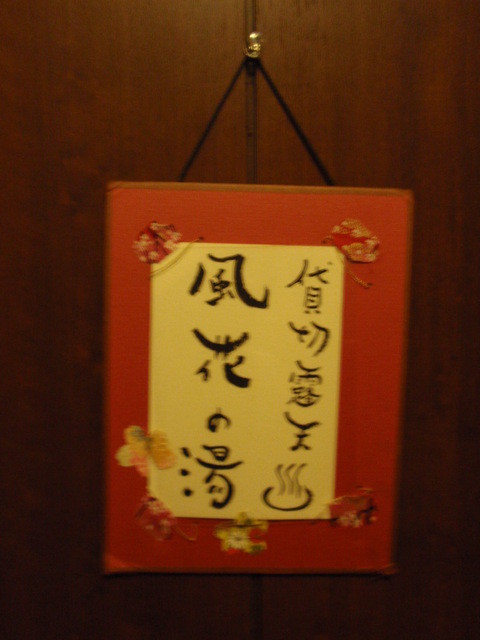 貸切露天♨
風花の湯